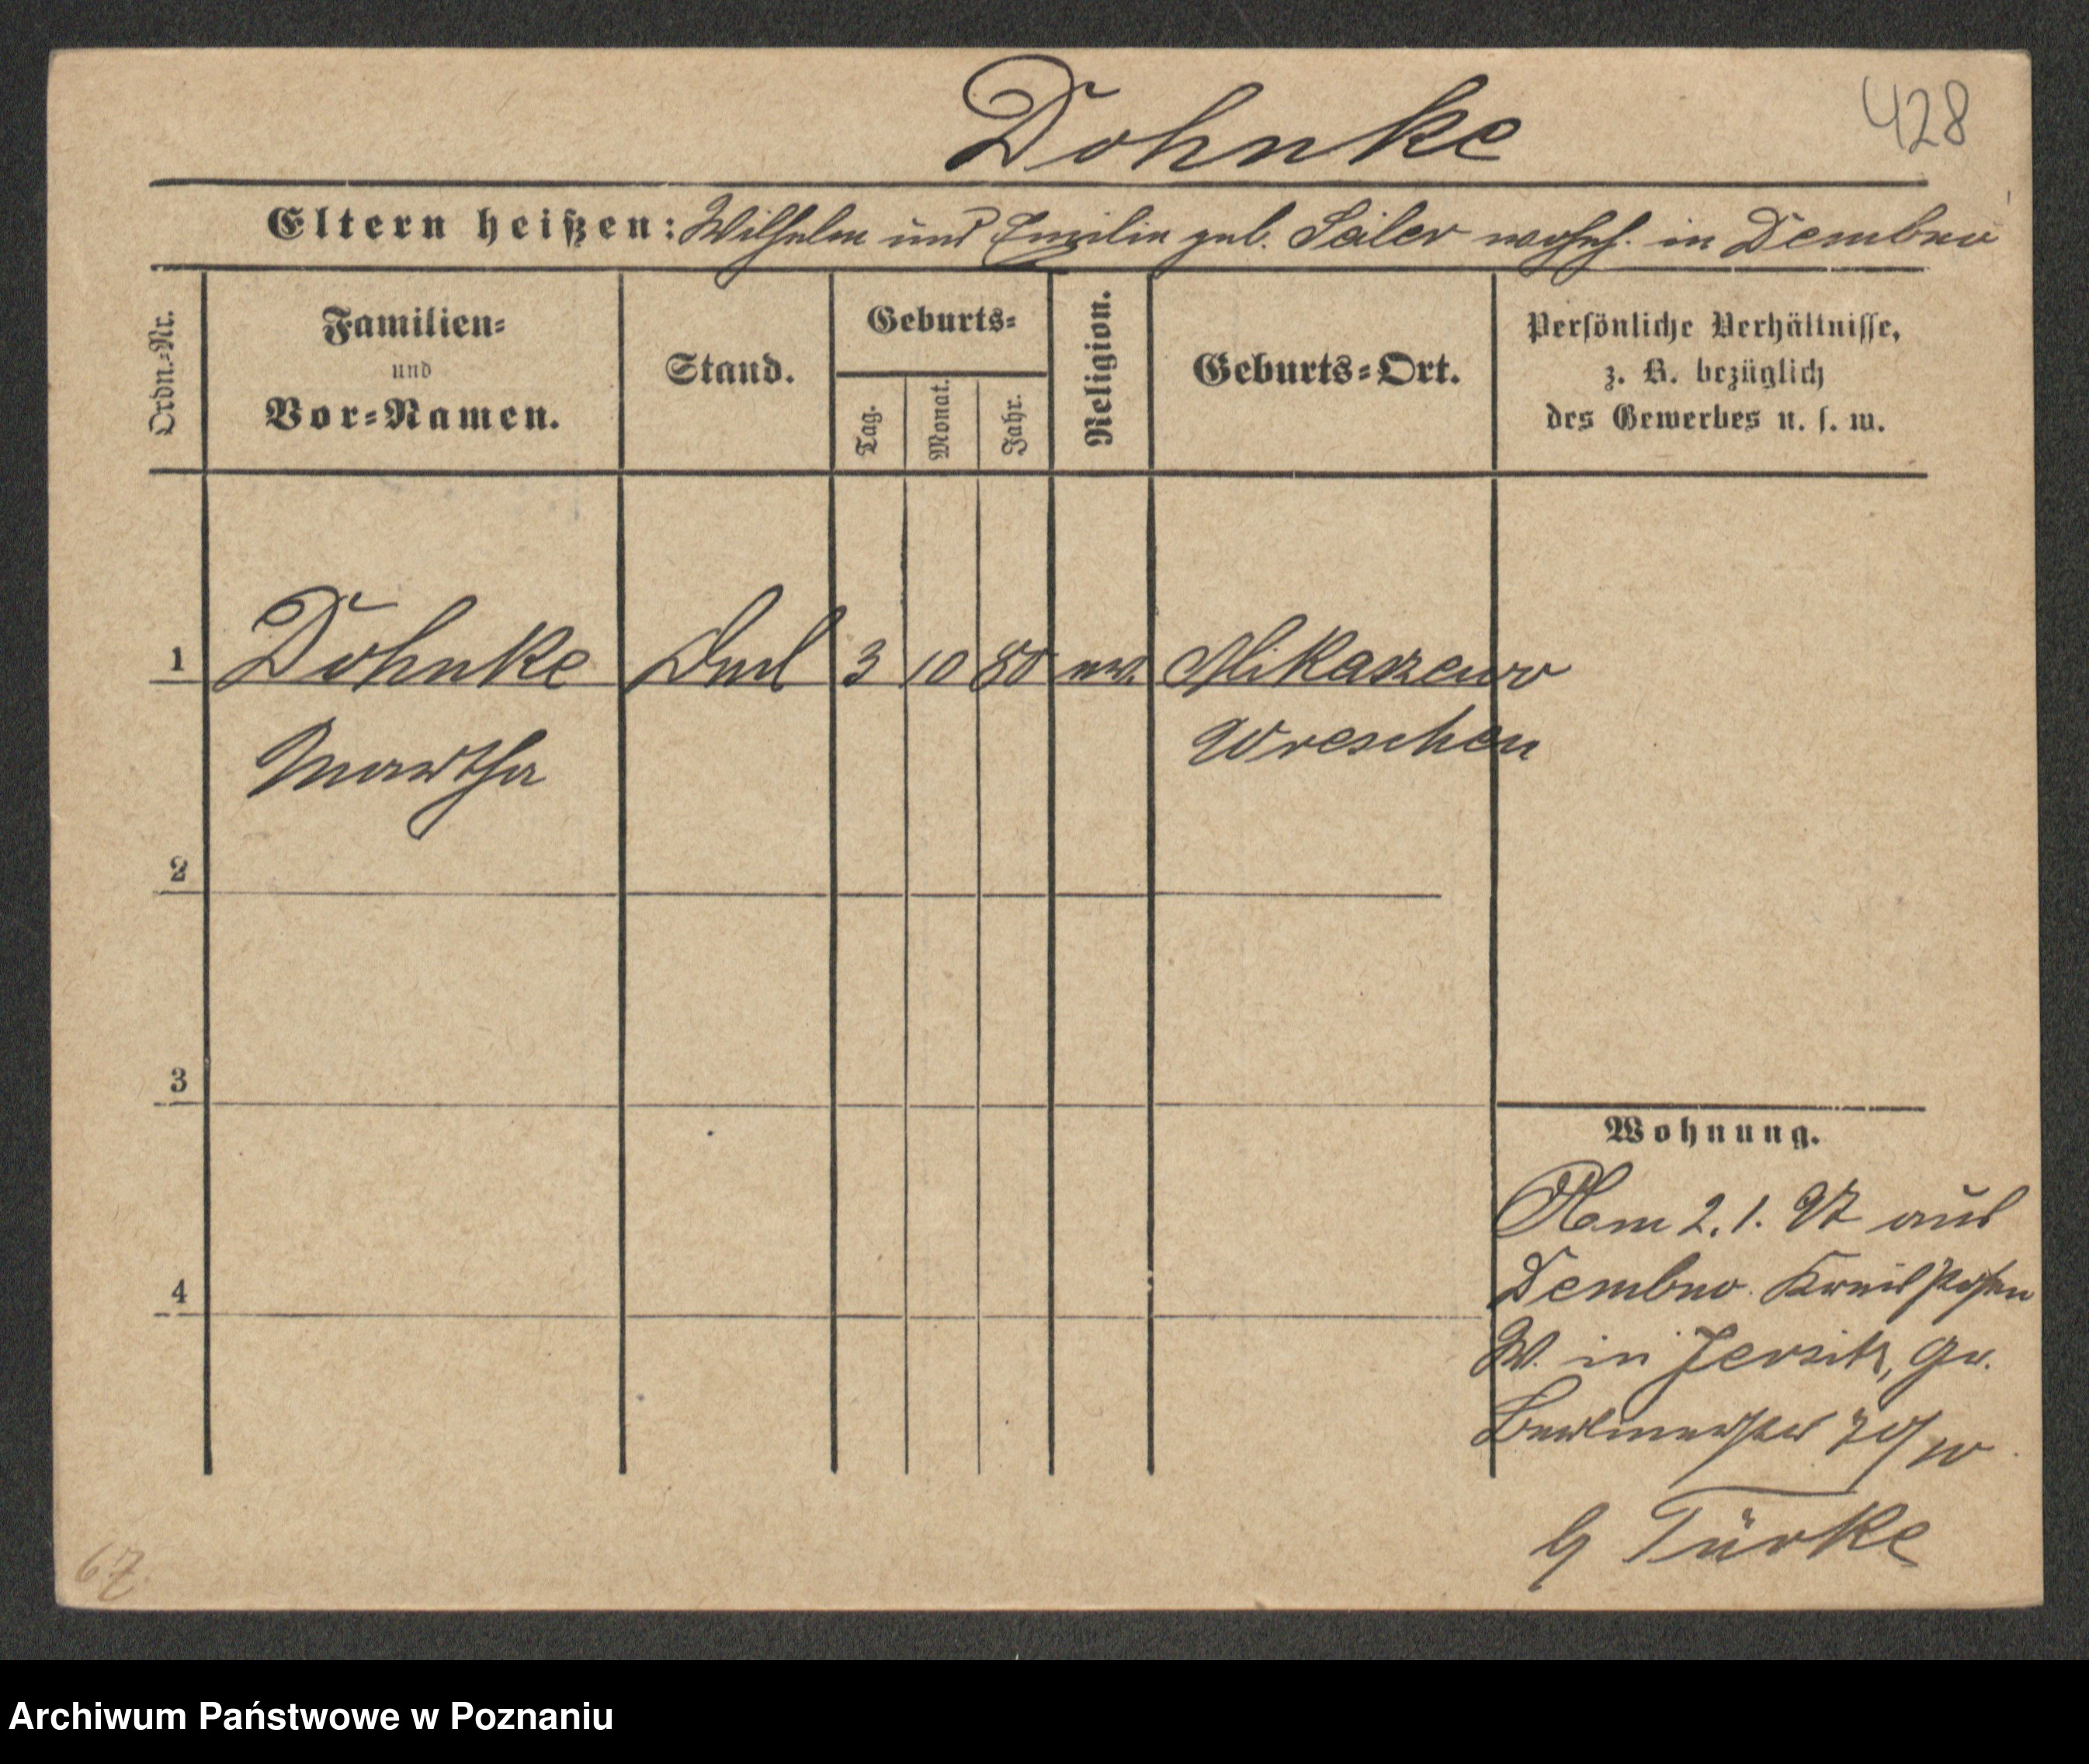 428
Dohnke
Eltern heißen: Wilhelm und Emilie geb. Seiler wohnh. in Dembno
Ordn.-Nr.
Familien- und Vor-Namen.
Stand.
Geburts-
Tag.
Monat.
Jahr.
Religion.
Geburts-Ort.
Persönliche Verhältnisse,
z. B. bezüglich
des Gewerbes u. s. w.
1 Dohnke 3 10 80 ev. Mikaszewo
Martha Wreschen
2
3
4
Wohnung.
Kam 2. 1. 97 aus
Dembno Kreis Posen
W. in Jersitz, Gr.
Berlinerstr
b/ Türke
67
Archiwum Państwowe w Poznaniu